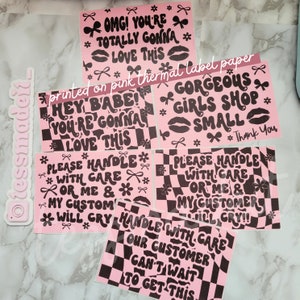 OMG! YOU'RE
TOTALLY GONNA
LOVE THIS
printed on pink thermal label paper
HEY, BABE!
YOU'RE GONNA
LOVE THIS
GORGEOUS
GIRLS SHOP
SMALL
Thank You
PLEASE HANDLE
WITH CARE
OR ME &
MY CUSTOM
WILL CRY!!
PLEASE HANDLE
WITH CARE
OR ME &
MY CUSTOMER
WILL CRY!!
HANDLE WITH CARE
OUR CUSTOMER
CAN'T WAIT
TO GET THIS